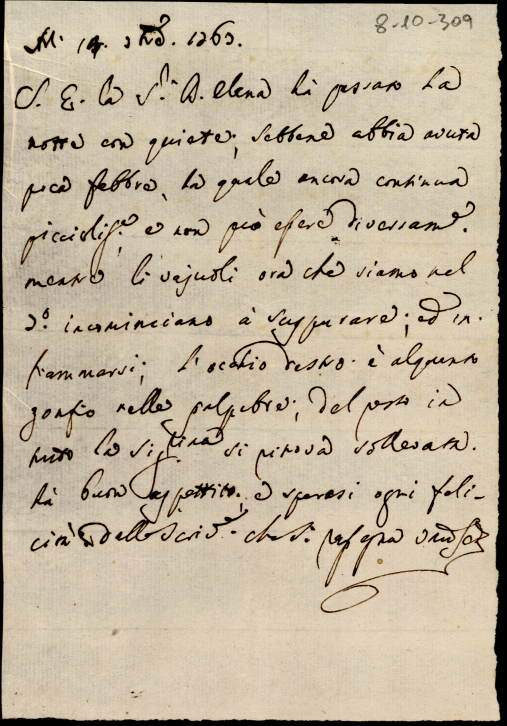 8-10-309
Al. 14. 1763.
S. E. la S.ra D. Elena hà passato la
notte con quiete; sebbene abbia avuta
poca febbre, la quale ancora continua
picciolis.a, e non può essere diversam.e
mentre li vajuoli ora che siamo nel
7.o incominciano à suppurare; ed in-
fiammarsi; l'occhio destro è alquanto
gonfio nelle palpebre; del resto in
tutto la Sig.rina si ritrova sollevata.
hà buon appettito; e sperasi ogni feli-
cità dallo Scriv.e che si rassegna